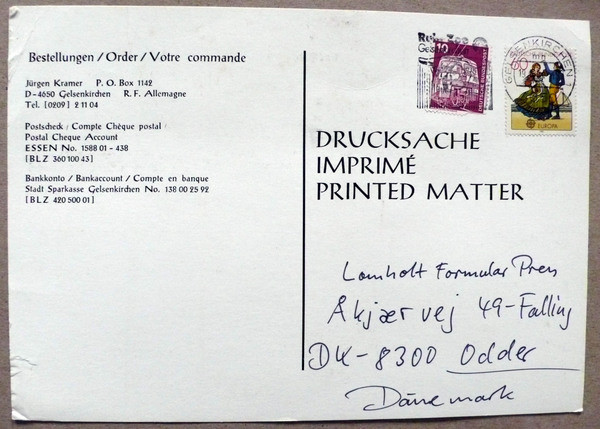 Bestellungen / Order / Votre commande
Jürgen Kramer P. O. Box 1142
D-4650 Gelsenkirchen R. F. Allemagne
Tel. [0209] 2 11 04
Postscheck / Compte Chèque postal /
Postal Cheque Account
ESSEN No. 1588 01 - 438
[BLZ 360 100 43]
Bankkonto / Bankaccount / Compte en banque
Stadt Sparkasse Gelsenkirchen No. 138 00 25 92
[BLZ 420 500 01]
10
GELSENKIRCHEN
60
EUROPA
DRUCKSACHE
IMPRIMÉ
PRINTED MATTER
Lomholt Formular Press
Åkjær vej 49-Falling
DK-8300 Odder
Dänemark